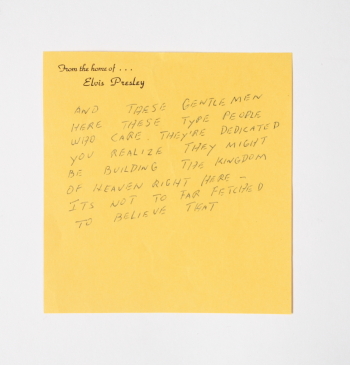 From the home of . . .
Elvis Presley
AND THESE GENTLEMEN
HERE THESE TYPE PEOPLE
WHO CARE. THEY'RE DEDICATED
YOU REALIZE THEY MIGHT
BE BUILDING THE KINGDOM
OF HEAVEN RIGHT HERE -
ITS NOT TO FAR FETCHED
TO BELIEVE THAT